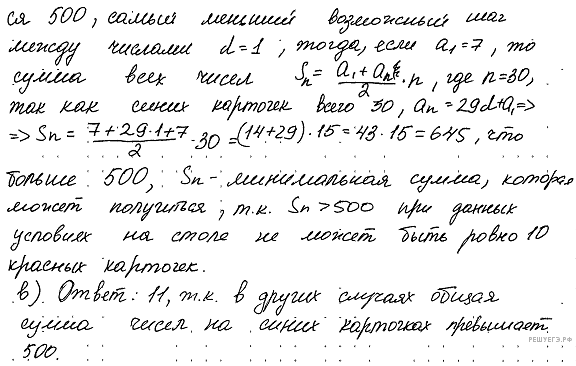 ся 500, самый меньший возможный шаг
между числами d=1, тогда, если a₁=7, то
сумма всех чисел Sₙ = (a₁+aₙ)/2 · n, где n=30,
так как синих карточек всего 30, aₙ=29d+a₁ =>
=> Sₙ = (7+29·1+7)/2 · 30 = (14+29)·15=43·15=645, что
больше 500, Sₙ - минимальная сумма, которая
может получиться, т.к. Sₙ>500 при данных
условиях на столе не может быть ровно 10
красных карточек.
в) Ответ: 11, т.к. в других случаях общая
сумма чисел на синих карточках превышает
500.
РЕШУЕГЭ.РФ